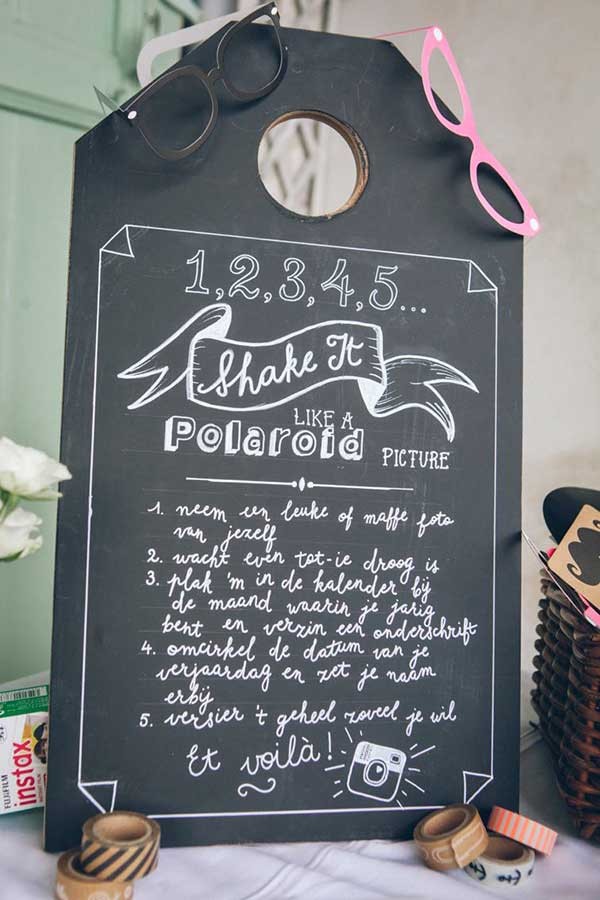 1, 2, 3, 4, 5...
Shake It
LIKE A
Polaroid PICTURE
1. neem een leuke of maffe foto
van jezelf
2. wacht even tot-ie droog is
3. plak 'm in de kalender bij
de maand waarin je jarig
bent en verzin een onderschrift
4. omcirkel de datum van je
verjaardag en zet je naam
erbij
5. versier 't geheel zoveel je wil
Et voilà!
FUJIFILM
instax